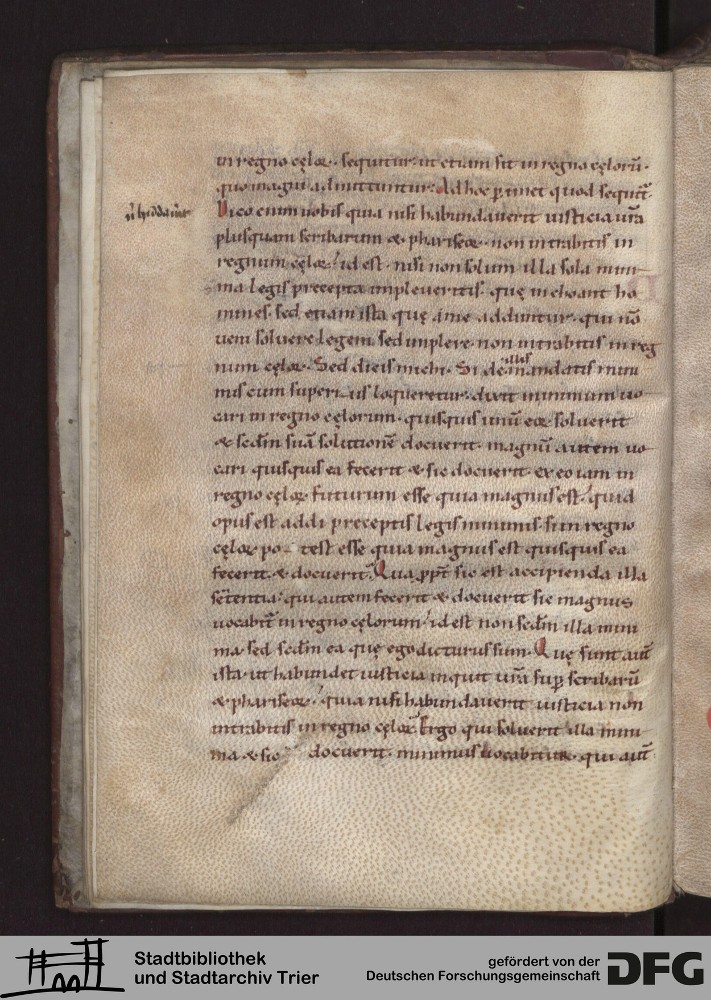 in regno cęloꝝ· sequitur· ut etiam sit in regno cęlorū·
quo magni admittuntur· Ad hoc ꝑtinet quod sequit̄·
Dico enim uobis quia nisi habundauerit iusticia ur̄a
plusquam scribarum & phariseoꝝ· non intrabitis in
regnum cęloꝝ· id est· nisi non solum illa sola mini
ma legis precepta impleueritis· quę inchoant ho
mines· sed etiam ista quę a me adduntur· qui nō
ueni soluere legem sed implere· non intrabitis in reg
num cęloꝝ· Sed dicis michi· Si de illis mandatis mini
mis cum superius loqueretur· dixit minimum uo
cari in regno cęlorum· quisquis unū eoꝝ soluerit
& scdm̄ suā solutionē docuerit· magnū autem uo
cari quisquis ea fecerit & sic docuerit· ex eo iam in
regno cęloꝝ futurum esse quia magnus est· quid
opus est addi preceptis legis minimis· si in regno
cęloꝝ po test esse quia magnus est quisquis ea
fecerit· & docuerit· Quaꝓpt̄ sic est accipienda illa
sētentia· qui autem fecerit & docuerit sic magnus
uocabit̄ in regno cęlorum· id est non scdm̄ illa mini
ma sed scdm̄ ea quę ego dicturus sum· Quę sunt aut̄
ista· ut habundet iusticia inquit ur̄a suꝑ scribarū
& phariseoꝝ· quia nisi habundauerit iusticia non
intrabitis in regno cęloꝝ· Ergo qui soluerit illa mini
ma & sic docuerit· minimus uocabitur· qui aut̄
Stadtbibliothek
und Stadtarchiv Trier
gefördert von der
Deutschen Forschungsgemeinschaft
DFG